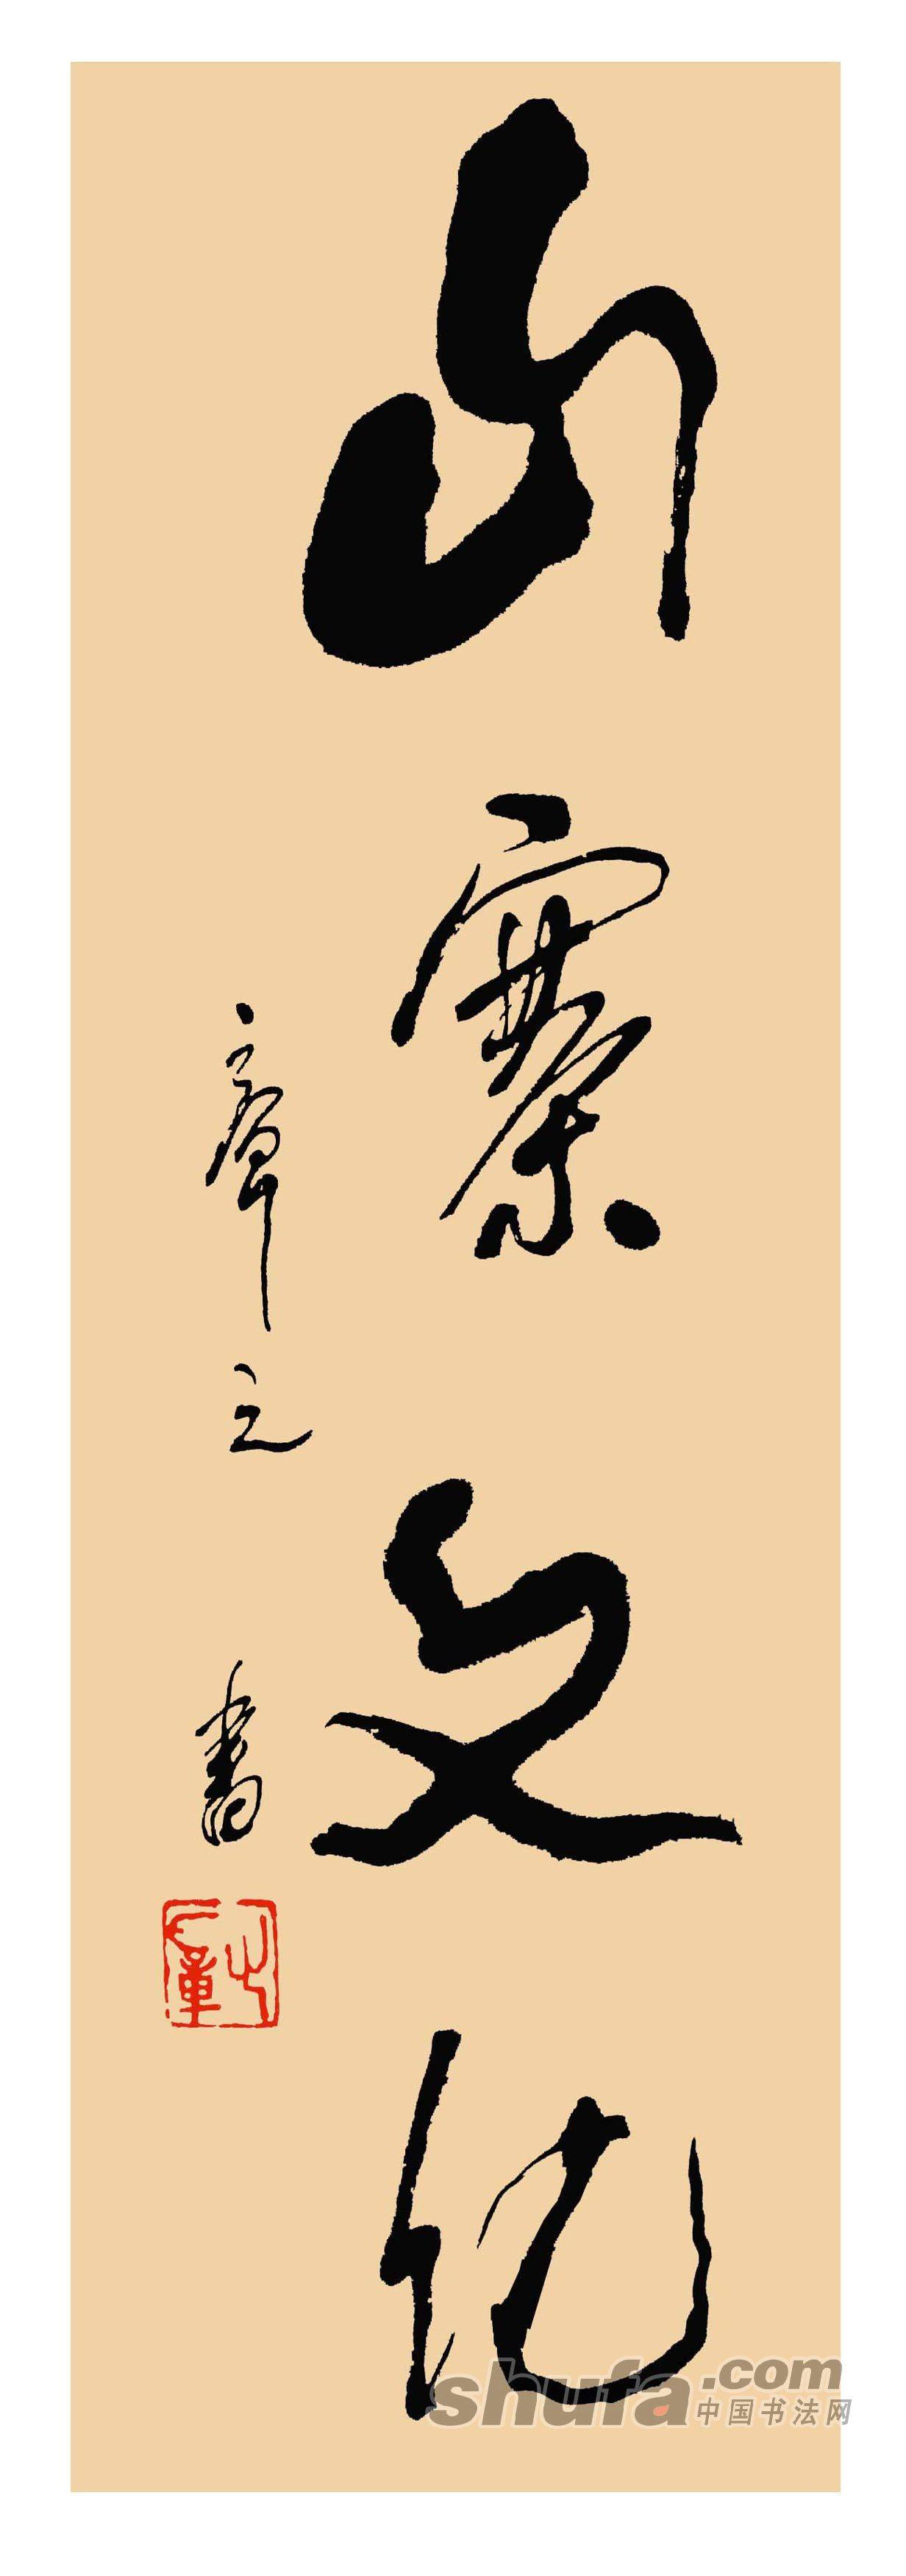 山寨文化
章之书
shufa.com
中国书法网